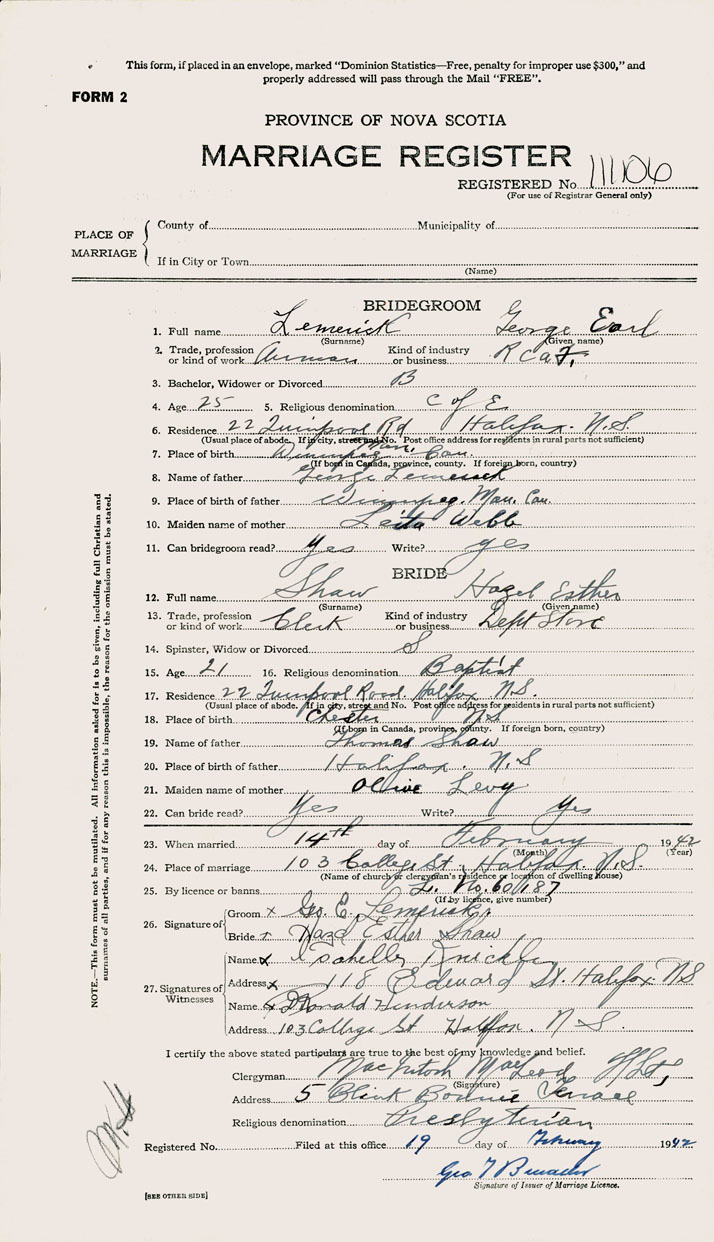 This form, if placed in an envelope, marked "Dominion Statistics—Free, penalty for improper use $300," and
properly addressed will pass through the Mail "FREE".
FORM 2
PROVINCE OF NOVA SCOTIA
MARRIAGE REGISTER
REGISTERED No. 111106
(For use of Registrar General only)
PLACE OF MARRIAGE
County of Municipality of
If in City or Town
(Name)
BRIDEGROOM
1. Full name Lemerick George Earl
(Surname) (Given name)
2. Trade, profession or kind of work Airman Kind of industry or business R C A F.
3. Bachelor, Widower or Divorced B
4. Age 25 5. Religious denomination C of E.
6. Residence 22 Quinpool Rd Halifax. N.S.
(Usual place of abode. If in city, street and No. Post office address for residents in rural parts not sufficient)
7. Place of birth Winnipeg Man. Can.
(If born in Canada, province, county. If foreign born, country)
8. Name of father George Lemerick
9. Place of birth of father Winnipeg. Man. Can.
10. Maiden name of mother Webb
11. Can bridegroom read? Yes Write? yes
BRIDE
12. Full name Shaw Hazel Esther
(Surname) (Given name)
13. Trade, profession or kind of work Clerk Kind of industry or business Dept Store
14. Spinster, Widow or Divorced S
15. Age 21 16. Religious denomination Baptist
17. Residence 22 Quinpool Road. Halifax N.S.
(Usual place of abode. If in city, street and No. Post office address for residents in rural parts not sufficient)
18. Place of birth Chester N.S
(If born in Canada, province, county. If foreign born, country)
19. Name of father Thomas Shaw
20. Place of birth of father Halifax. N.S
21. Maiden name of mother Olive Levy
22. Can bride read? Yes Write? Yes
23. When married 14th day of February 1942
(Month) (Year)
24. Place of marriage 103 College St. Halifax. N.S.
(Name of church or clergyman's residence or location of dwelling house)
25. By licence or banns L. No. 60187
(If by licence, give number)
26. Signature of
Groom x Geo. E. Lemerick
Bride x Hazel Esther Shaw
27. Signatures of Witnesses
Name x Isabelle
Address x 118 Edward St. Halifax NS
Name x Donald Henderson
Address 103 College St Halifax. N.S.
I certify the above stated particulars are true to the best of my knowledge and belief.
Clergyman MacIntosh MacLeod F/Lt,
(Signature)
Address 5 Bonnie Terrace
Religious denomination Presbyterian
Registered No. Filed at this office 19 day of February 1942
Geo T
Signature of Issuer of Marriage Licence.
[SEE OTHER SIDE]
NOTE.—This form must not be mutilated. All information asked for is to be given, including full Christian and
surnames of all parties, and if for any reason this is impossible, the reason for the omission must be stated.